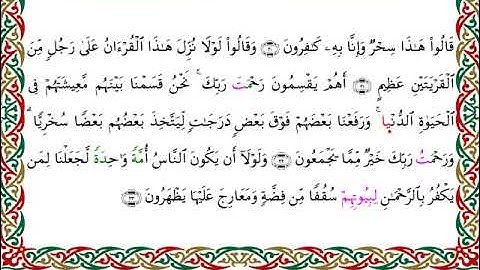 قَالُوا۟ هَـٰذَا سِحْرٌ وَإِنَّا بِهِۦ كَـٰفِرُونَ ﴿٣٠﴾ وَقَالُوا۟ لَوْلَا نُزِّلَ هَـٰذَا ٱلْقُرْءَانُ عَلَىٰ رَجُلٍ مِّنَ
ٱلْقَرْيَتَيْنِ عَظِيمٍ ﴿٣١﴾ أَهُمْ يَقْسِمُونَ رَحْمَتَ رَبِّكَ ۚ نَحْنُ قَسَمْنَا بَيْنَهُم مَّعِيشَتَهُمْ فِى
ٱلْحَيَوٰةِ ٱلدُّنْيَا ۚ وَرَفَعْنَا بَعْضَهُمْ فَوْقَ بَعْضٍ دَرَجَـٰتٍ لِّيَتَّخِذَ بَعْضُهُم بَعْضًا سُخْرِيًّا ۗ
وَرَحْمَتُ رَبِّكَ خَيْرٌ مِّمَّا يَجْمَعُونَ ﴿٣٢﴾ وَلَوْلَآ أَن يَكُونَ ٱلنَّاسُ أُمَّةً وَٰحِدَةً لَّجَعَلْنَا لِمَن
يَكْفُرُ بِٱلرَّحْمَـٰنِ لِبُيُوتِهِمْ سُقُفًا مِّن فِضَّةٍ وَمَعَارِجَ عَلَيْهَا يَظْهَرُونَ ﴿٣٣﴾